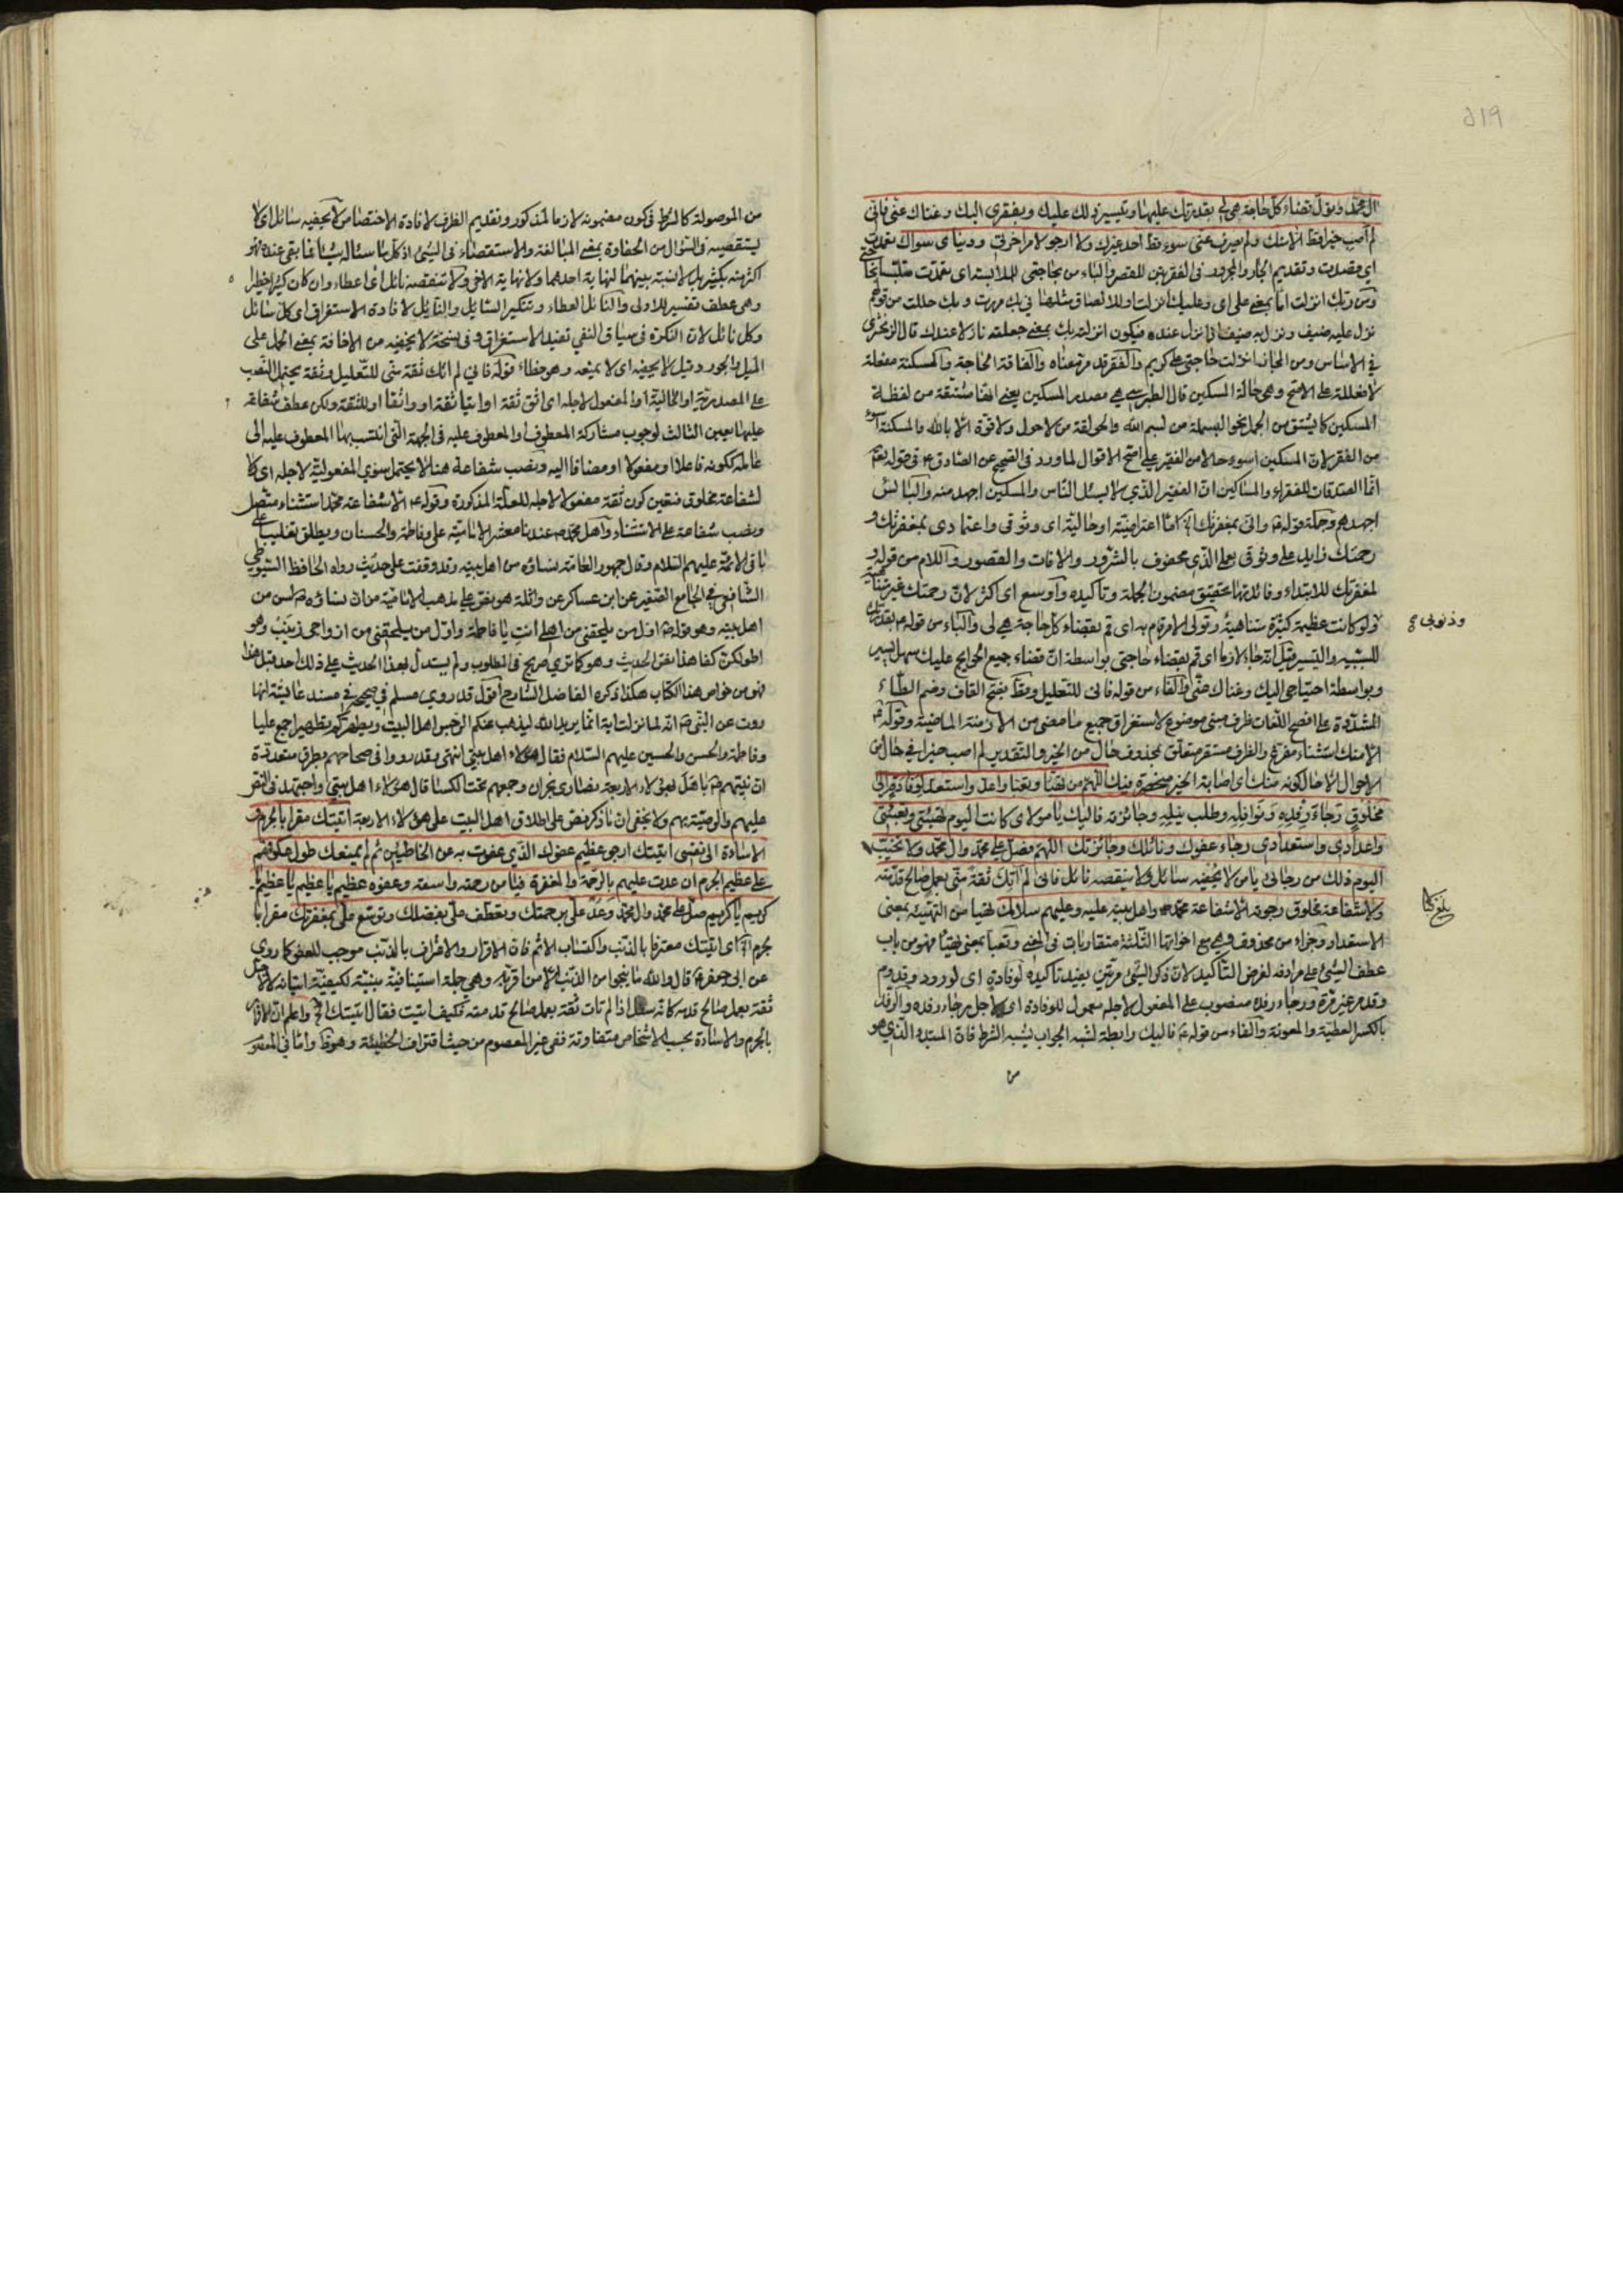 آل محمد وتول قضاء كل حاجة هي لي بقدرتك عليها وتيسير ذلك عليك وبفقري اليك وغناك عني فاني
لم اصب خيرا قط الا منك ولم يصرف عني سوء قط احد غيرك ولا ارجو لامر اخرتي ودنياي سواك تعمدت
اي قصدت وتقديم الجار والمجرور في الفقرتين للقصر والباء من بحاجتي للملابسة اى تعمدت متلبسا بحاجتي
وبك انزلت اما بمعنى على اى وعليك انزلت او للالصاق مثلها في بك مررت وبك حللت من قولهم
نزل عليه ضيف ونزل به ضيف اى نزل عنده فيكون انزلته بك بمعنى جعلته نازلا عندك قال الزمخشري
في الاساس ومن المجاز انزلت حاجتي على كريم والفقر قد مر معناه والفاقة الحاجة والمسكنة مفعلة
لا فعللة على الاصح وهي حالة المسكين قال الطبرسي هي مصدر المسكين يعني انها مشتقة من لفظة
المسكين كما يشتق من الجمل نحو البسملة من لبسم الله والحولقة من لاحول ولا قوة الا بالله والمسكنة اسوء
من الفقر لان المسكين اسوء حالا من الفقير على اصح الاقوال لما ورد في الصحيح عن الصادق ع في قوله تعالى
انما الصدقات للفقراء والمساكين ان الفقير الذي لا يسئل الناس والمسكين اجهد منه والبائس
اجهدهم وجملة قوله ع واني بمغفرتك الخ اما اعتراضية او حالية اى وثوقي واعتمادي بمغفرتك و
رحمتك زايد على وثوقي بعملي الذي محفوف بالشرور والافات والقصور واللام من قوله و
لمغفرتك للابتداء وفائدتها تحقيق مضمون الجملة وتاكيده واوسع اى اكثر لان رحمتك غير متناهية
وذنوبي ولو كانت عظيمة كثيرة متناهية وتولى الامر قام به اى قم بقضاء كل حاجة هي لي والباء من قوله ع بقدرتك
للسببية والتيسير قيل انه جاء لازما اى قم بقضاء حاجتي بواسطة ان قضاء جميع الحوائج عليك سهل يسير
وبواسطة احتياجي اليك وغناك عني والفاء من قوله فاني للتعليل وقط بفتح القاف وضم الطاء
المشددة على افصح اللغات ظرف مبني موضوع لاستغراق جميع ما مضى من الازمنة الماضية وقوله ع
الا منك استثناء مفرغ والظرف مستقر متعلق بمحذوف حال من الخير والتقدير لم اصب خيرا في حال من
الاحوال الا حال كونه منك اى اصابة الخير منحصرة فيك اللهم من تهيا وتعبا واعد واستعد لوفادة الى
مخلوق رجاء رفده ونوافله وطلب نيله وجائزته فاليك يا مولاى كانت اليوم تهيئتي وتعبئتي
واعدادي واستعدادي رجاء عفوك ونائلك وجائزتك اللهم فصل على محمد وآل محمد ولا تخيب
اليوم ذلك من رجائي يا من لا يحفيه سائل ولا ينقصه نائل فاني لم آتك ثقة مني بعمل صالح قدمته
ولا شفاعة مخلوق رجوته الا شفاعة محمد واهل بيته عليه وعليهم سلامك تهيا من التهيئة بمعنى
الاستعداد وجزاء من محذوف وهي مع اخواتها الثلثة متقاربات في المعنى وتعبا بمعنى تهيا فهو من باب
عطف الشئ على مرادفه لغرض التاكيد لان ذكر الشئ مرتين يفيد تاكيده لوفادة اى لورود وقدوم
وقد مر غير مرة ورجاء رفده منصوب على المفعول لاجله معمول للوفادة اى لاجل رجاء رفده والرفد
بالكسر العطية والمعونة والفاء من قوله ع فاليك رابطة لشبه الجواب بشبه الشرط فان المبتدا الذي هو
من
وذنوبي
من الموصولة كالشرط في كون مضمونه لازما للمذكور وتقديم الظرف لافادة الاختصاص لا يحفيه سائل اى لا
يستقصيه في السؤال من الحفاوة بمعنى المبالغة والاستقصاء في الشئ اذ كل ما سئاله شيئا فما بقي عنده هو
اكثر منه بكثير بل لا نسبة بينهما لنهاية احدهما ولا نهاية الاخر ولا تنقصه نائل اى اعطاء وان كان كثيرا خطيرا
وهي عطف تفسير للاولى والنائل العطاء وتنكير السائل والنائل لافادة الاستغراق اى كل سائل
وكل نائل لان النكرة في سياق النفي تفيد الاستغراق وفي نسخة لا يخيفه من الاخافة بمعنى الحمل على
الميل والجور وقيل لا يحفيه اى لا يمنعه وهو خطاء قوله فاني لم اتك ثقة مني للتعليل وثقة يحتمل النصب
على المصدرية او الحالية او المفعول لاجله اى اثق ثقة او اتيانا ثقة او واثقا او للثقة ولكن عطف شفاعة
عليها يعين الثالث لوجوب مشاركة المعطوف والمعطوف عليه في الجهة التي انتسب بها المعطوف عليه الى
عامله ككونه فاعلا او مفعولا او مضافا اليه ونصب شفاعة هنا لا يحتمل سوى المفعولية لاجله اى لا
لشفاعة مخلوق فتعين كون ثقة مفعولا لاجله للعلة المذكورة وقوله ع الا شفاعة محمد استثناء متصل
ونصب شفاعة على الاستثناء واهل محمد ص عندنا معشر الامامية علي وفاطمة والحسنان ويطلق تغليبا على
باقي الائمة عليهم السلام وقال جمهور العامة نساؤه من اهل بيته وقد وقفت على حديث رواه الحافظ السيوطي
الشافعي في الجامع الصغير عن ابن عساكر عن واثلة هو نص على مذهب الامامية من ان نساؤه ص لسن من
اهل بيته وهو قوله ص اول من يلحقني من اهلي انت يا فاطمة واول من يلحقني من ازواجي زينب وهو
اطولكن كفا هذا نص الحديث وهو كما ترى صريح في المطلوب ولم يستدل بهذا الحديث على ذلك احد قبل هذا
فهو من خواص هذا الكتاب هكذا ذكره الفاضل الشارح اقول قد روى مسلم في صحيحه في مسند عايشة انها
روت عن النبي ص انه لما نزلت اية انما يريد الله ليذهب عنكم الرجس اهل البيت ويطهركم تطهيرا جمع عليا
وفاطمة والحسن والحسين عليهم السلام فقال هؤلاء اهل بيتي انتهى وقد رووا في صحاحهم بطرق متعددة
ان نبيهم ص باهل بهؤلاء الاربعة نصارى نجران وجمعهم تحت الكساء قال هؤلاء اهل بيتي واجتهد في النص
عليهم والوصية بهم ولا يخفى ان ما ذكر نص على اطلاق اهل البيت على هؤلاء الاربعة اتيتك مقرا بالجرم و
الاساءة الى نفسي اتيتك ارجو عظيم عفوك الذي عفوت به عن الخاطئين ثم لم يمنعك طول عكوفهم
على عظيم الجرم ان عدت عليهم بالرحمة والمغفرة فيا من رحمته واسعة وعفوه عظيم يا عظيم يا عظيم يا
كريم يا كريم صل على محمد وآل محمد وعد علي برحمتك وتعطف علي بفضلك وتوسع علي بمغفرتك مقرا با
لجرم اه اى اتيتك معترفا بالذنب واكتساب الاثم فان الاقرار والاعتراف بالذنب موجب للعفو كما روى
عن ابى جعفر ع قال والله ما ينجو من الذنب الا من اقر به وهي جملة استينافية مبينة لكيفية اتيانه لا لاجل
ثقة بعمل صالح قدمه كانه سئل اذا لم تات ثقة بعمل صالح قدمته فكيف اتيت فقال اتيتك الخ واعلم ان الاقرار
بالجرم والاساءة بحسب الاشخاص متفاوتة ففي غير المعصوم من حيث اقتراف الخطيئة وهو ظاهر واما في المعصوم